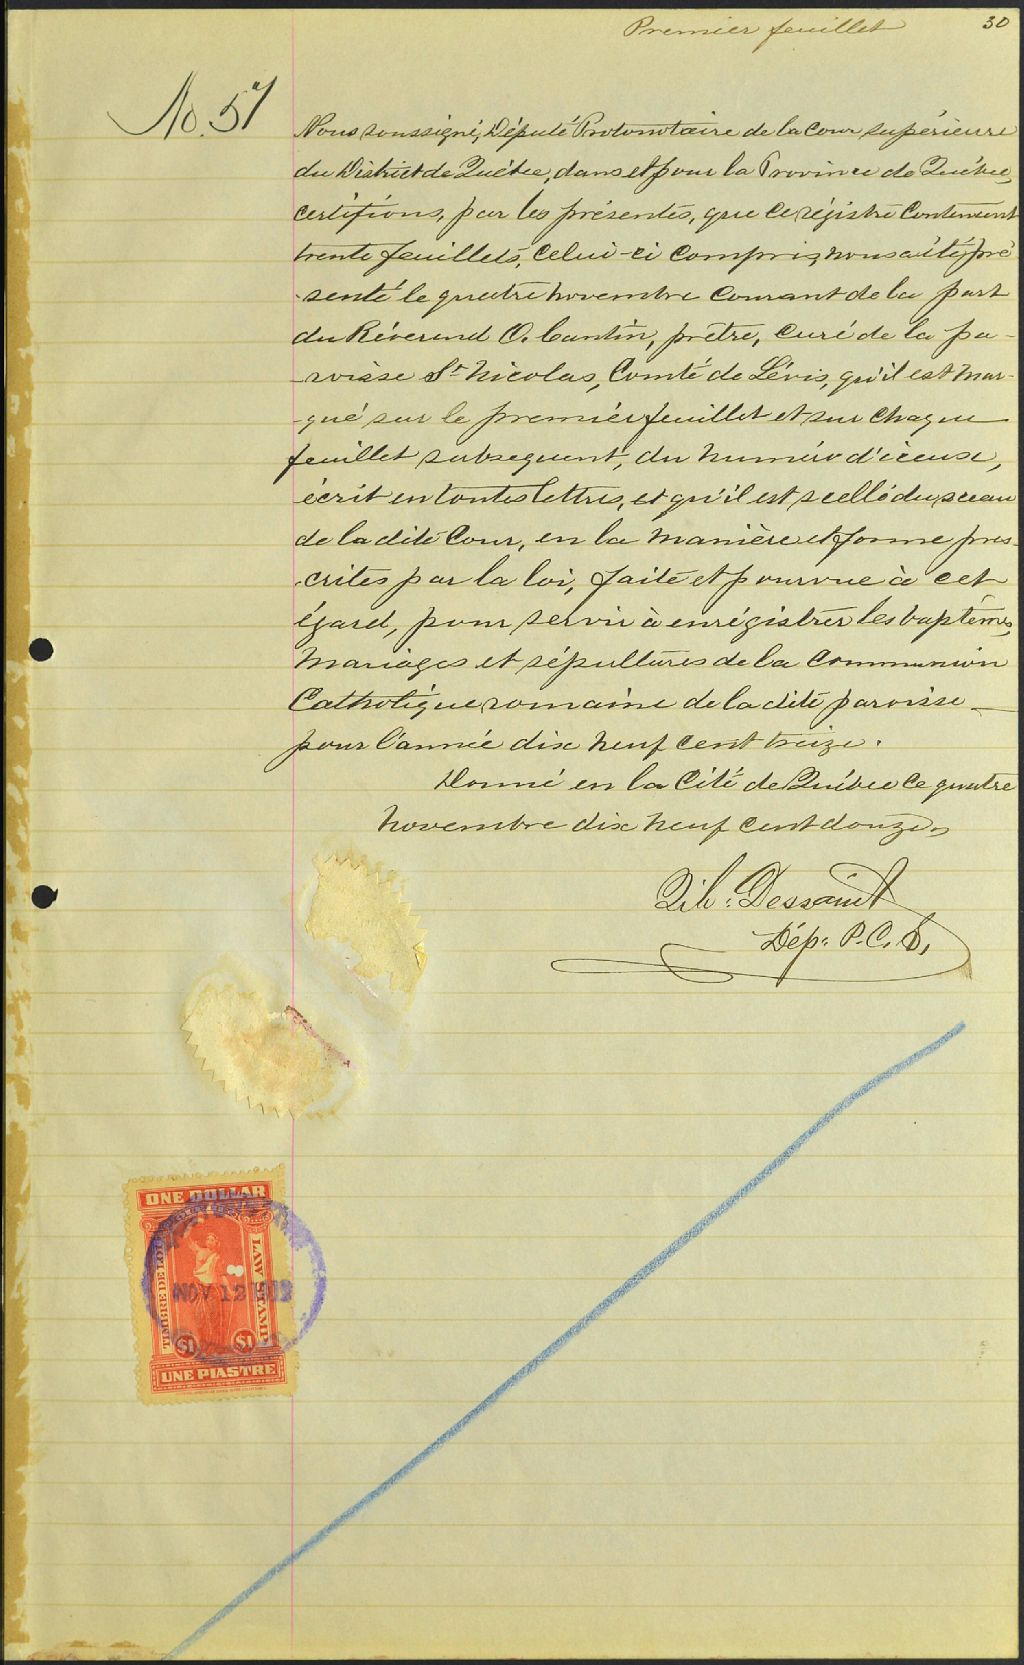 Premier feuillet
30
No. 57
Nous soussigné, Député Protonotaire de la Cour supérieure
du District de Québec, dans et pour la Province de Québec,
certifions, par les présentes, que ce régistre contenant
trente feuillets, celui-ci compris, nous a été pré
senté le quatre novembre courant de la part
du Révérend O. Cantin, prêtre, curé de la pa-
-roisse St Nicolas, Comté de Lévis, qu'il est mar-
-qué sur le premier feuillet et sur chaque
feuillet subsequent, du numéro d'iceux,
écrit en toutes lettres, et qu'il est scellé du sceau
de la dite Cour, en la manière et forme pres-
-crites par la loi, faite et pourvue à cet
égard, pour servir à enrégistrer les baptêmes,
mariages et sépultures de la Communion
Catholique romaine de la dite paroisse
pour l'année dix neuf cent treize.
Donné en la Cité de Québec ce quatre
novembre dix neuf cent douze.
Dessaint
Dép. P.C.S.
ONE DOLLAR
TIMBRE DE LOI
LAW STAMP
NOV 12 1912
$1 $1
UNE PIASTRE